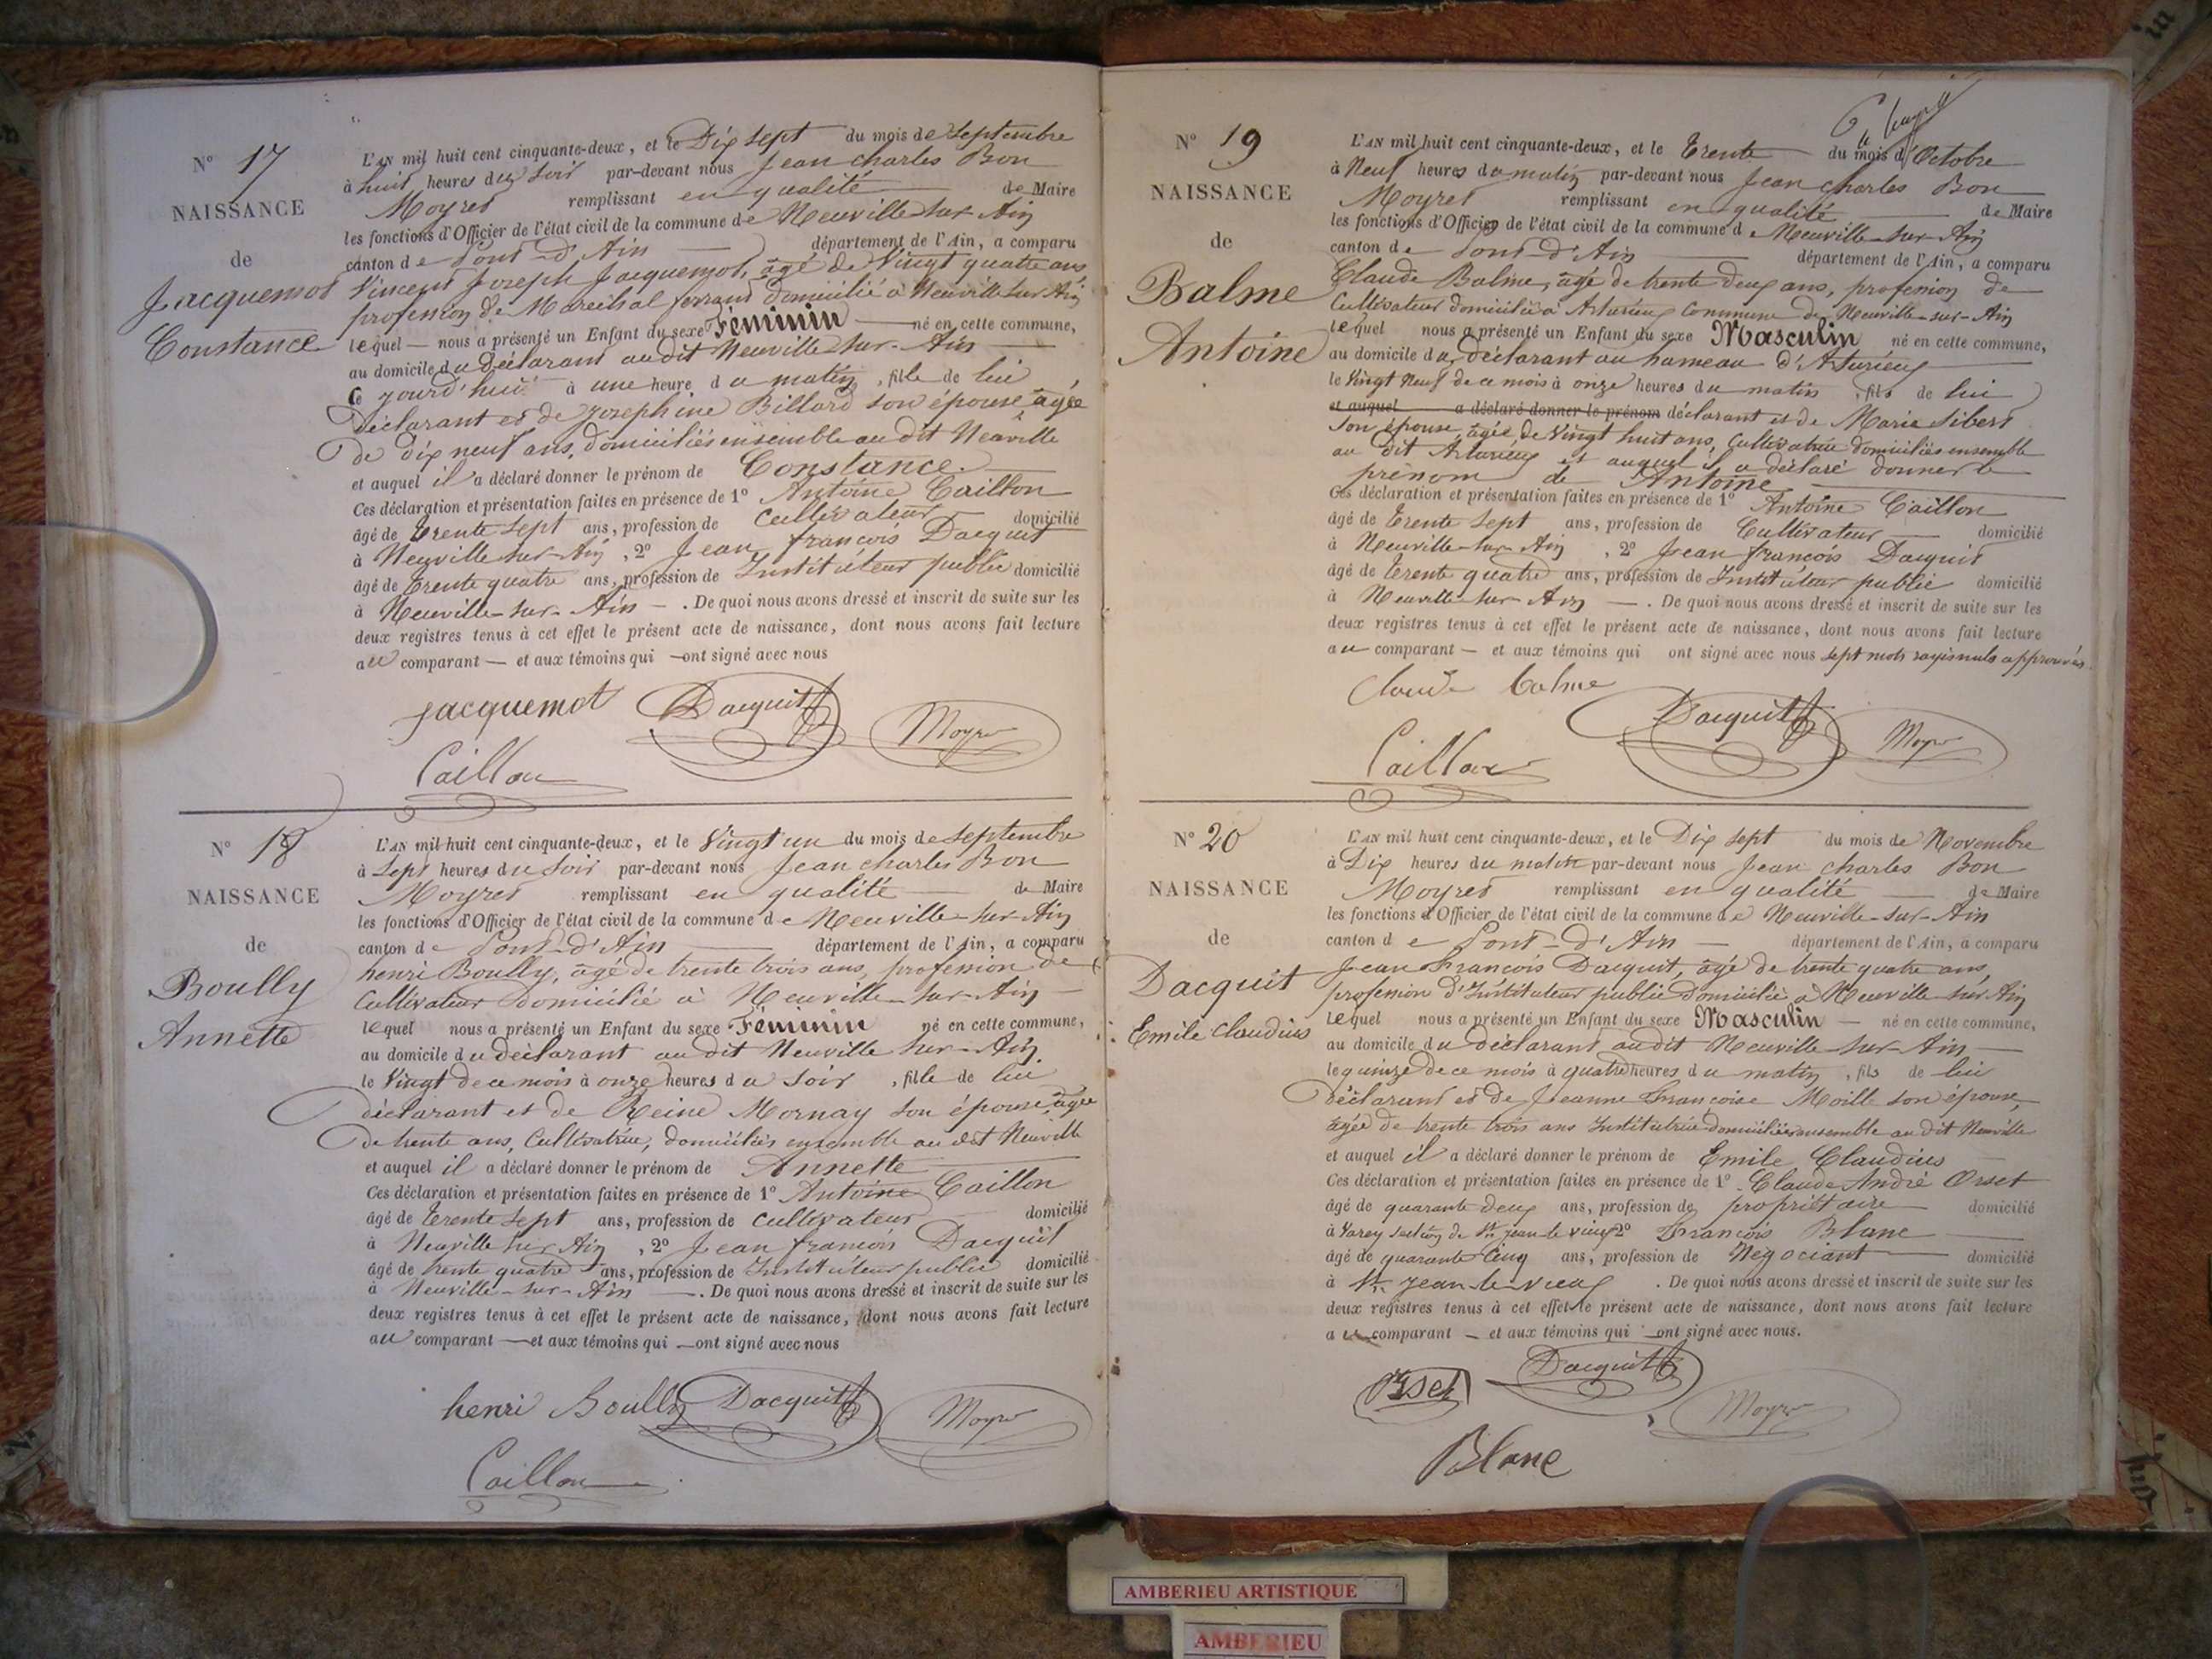 N° 17
NAISSANCE
de
Jacquemot
Constance
L'AN mil huit cent cinquante-deux, et le Dix sept du mois de Septembre
à huit heures du soir par-devant nous Jean Charles Bon
Moyret remplissant en qualité de Maire
les fonctions d'Officier de l'état civil de la commune de Neuville sur Ain
canton de Pont-d'Ain département de l'Ain, a comparu
Vincent Joseph Jacquemot, âgé de Vingt quatre ans
profession de Maréchal ferrant domicilié à Neuville sur Ain
lequel nous a présenté un Enfant du sexe Féminin né en cette commune,
au domicile du Déclarant audit Neuville sur-Ain
Ce jourd'hui à une heure du matin, fille de lui
Déclarant et de Josephine Billard son épouse, âgée
De dix neuf ans, domiciliés ensemble au dit Neuville
et auquel il a déclaré donner le prénom de Constance.
Ces déclaration et présentation faites en présence de 1° Antoine Caillon
âgé de trente sept ans, profession de Cultivateur domicilié
à Neuville sur-Ain, 2° Jean françois Dacquit
âgé de trente quatre ans, profession de Instituteur public domicilié
à Neuville-sur-Ain. De quoi nous avons dressé et inscrit de suite sur les
deux registres tenus à cet effet le présent acte de naissance, dont nous avons fait lecture
au comparant et aux témoins qui ont signé avec nous
jacquemot Dacquit Moyret
Caillon
N° 18
NAISSANCE
de
Boully
Annette
L'AN mil huit cent cinquante-deux, et le Vingt un du mois de Septembre
à Sept heures du Soir par-devant nous Jean Charles Bon
Moyret remplissant en qualité de Maire
les fonctions d'Officier de l'état civil de la commune de Neuville-sur-Ain
canton de Pont-d'Ain département de l'Ain, a comparu
henri Boully, âgé de trente trois ans, profession de
Cultivateur domicilié à Neuville-sur-Ain
lequel nous a présenté un Enfant du sexe Féminin né en cette commune,
au domicile du déclarant au dit Neuville sur-Ain.
le Vingt de ce mois à onze heures du soir, fille de lui
déclarant et de Reine Mornay son épouse, âgée
De trente ans, Cultivatrice, domiciliés ensemble au dit Neuville
et auquel il a déclaré donner le prénom de Annette
Ces déclaration et présentation faites en présence de 1° Antoine Caillon
âgé de trente sept ans, profession de Cultivateur domicilié
à Neuville sur Ain, 2° Jean françois Dacquit
âgé de trente quatre ans, profession de Instituteur public domicilié
à Neuville-sur-Ain. De quoi nous avons dressé et inscrit de suite sur les
deux registres tenus à cet effet le présent acte de naissance, dont nous avons fait lecture
au comparant et aux témoins qui ont signé avec nous
henri Boully Dacquit Moyret
Caillon
N° 19
NAISSANCE
de
Balme
Antoine
L'AN mil huit cent cinquante-deux, et le trente du mois d'Octobre
à Neuf heures du matin par-devant nous Jean Charles Bon
Moyret remplissant en qualité de Maire
les fonctions d'Officier de l'état civil de la commune de Neuville-sur-Ain
canton de Pont-d'Ain département de l'Ain, a comparu
Claude Balme, âgé de trente deux ans, profession de
Cultivateur domicilié à Arturieux Commune de Neuville-sur-Ain
lequel nous a présenté un Enfant du sexe Masculin né en cette commune,
au domicile du déclarant au hameau d'Arturieux
le Vingt Neuf de ce mois à onze heures du matin, fils de lui
et auquel a déclaré donner le prénom déclarant et de Marie Sibert
Son épouse, âgée de Vingt huit ans, Cultivatrice domiciliés ensemble
au dit Arturieux et auquel il a déclaré donner le
prénom de Antoine
Ces déclaration et présentation faites en présence de 1° Antoine Caillon
âgé de trente sept ans, profession de Cultivateur domicilié
à Neuville-sur-Ain, 2° Jean françois Dacquit
âgé de trente quatre ans, profession de Instituteur public domicilié
à Neuville-sur-Ain. De quoi nous avons dressé et inscrit de suite sur les
deux registres tenus à cet effet le présent acte de naissance, dont nous avons fait lecture
au comparant et aux témoins qui ont signé avec nous sept mots rayés nuls approuvés
Claude balme Dacquit Moyret
Caillon
N° 20
NAISSANCE
de
Dacquit
Emile Claudius
L'AN mil huit cent cinquante-deux, et le Dix sept du mois de Novembre
à Dix heures du matin par-devant nous Jean Charles Bon
Moyret remplissant en qualité de Maire
les fonctions d'Officier de l'état civil de la commune de Neuville-sur-Ain
canton de Pont-d'Ain département de l'Ain, a comparu
Jean François Dacquit, âgé de trente quatre ans,
profession d'Instituteur public domicilié à Neuville sur Ain
Lequel nous a présenté un Enfant du sexe Masculin né en cette commune,
au domicile du déclarant audit Neuville-sur-Ain
le quinze de ce mois à quatre heures du matin, fils de lui
déclarant et de Jeanne Françoise Moille son épouse,
âgée de trente trois ans Institutrice domiciliés ensemble au dit Neuville
et auquel il a déclaré donner le prénom de Emile Claudius
Ces déclaration et présentation faites en présence de 1° Claude André Orset
âgé de quarante deux ans, profession de propriétaire domicilié
à Varey section de St jean le vieux 2° François Blanc
âgé de quarante Cinq ans, profession de Négociant domicilié
à St. jean-le-vieux. De quoi nous avons dressé et inscrit de suite sur les
deux registres tenus à cet effet le présent acte de naissance, dont nous avons fait lecture
au comparant et aux témoins qui ont signé avec nous.
Orset Dacquit Moyret
Blanc
AMBERIEU ARTISTIQUE
AMBERIEU